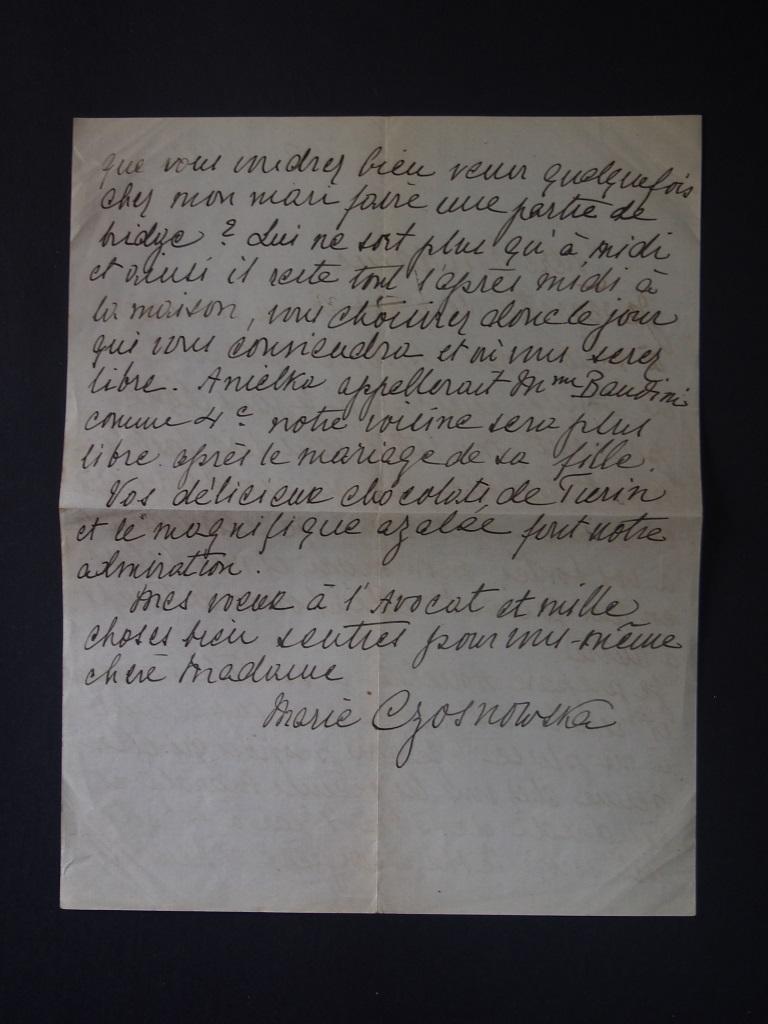 que vous voudrez bien venir quelquefois
chez mon mari faire une partie de
bridge ? Lui ne sort plus qu'à midi
et ainsi il reste tout l'après midi à
la maison, vous choisirez donc le jour
qui vous conviendra et où vous serez
libre. Anielka appellerait Mme Baudini
comme 4e notre voisine sera plus
libre après le mariage de sa fille.
Vos délicieux chocolats de Turin
et le magnifique azalée font notre
admiration.
Mes voeux à l'Avocat et mille
choses bien senties pour vous-même
chère Madame
Marie Czosnowska